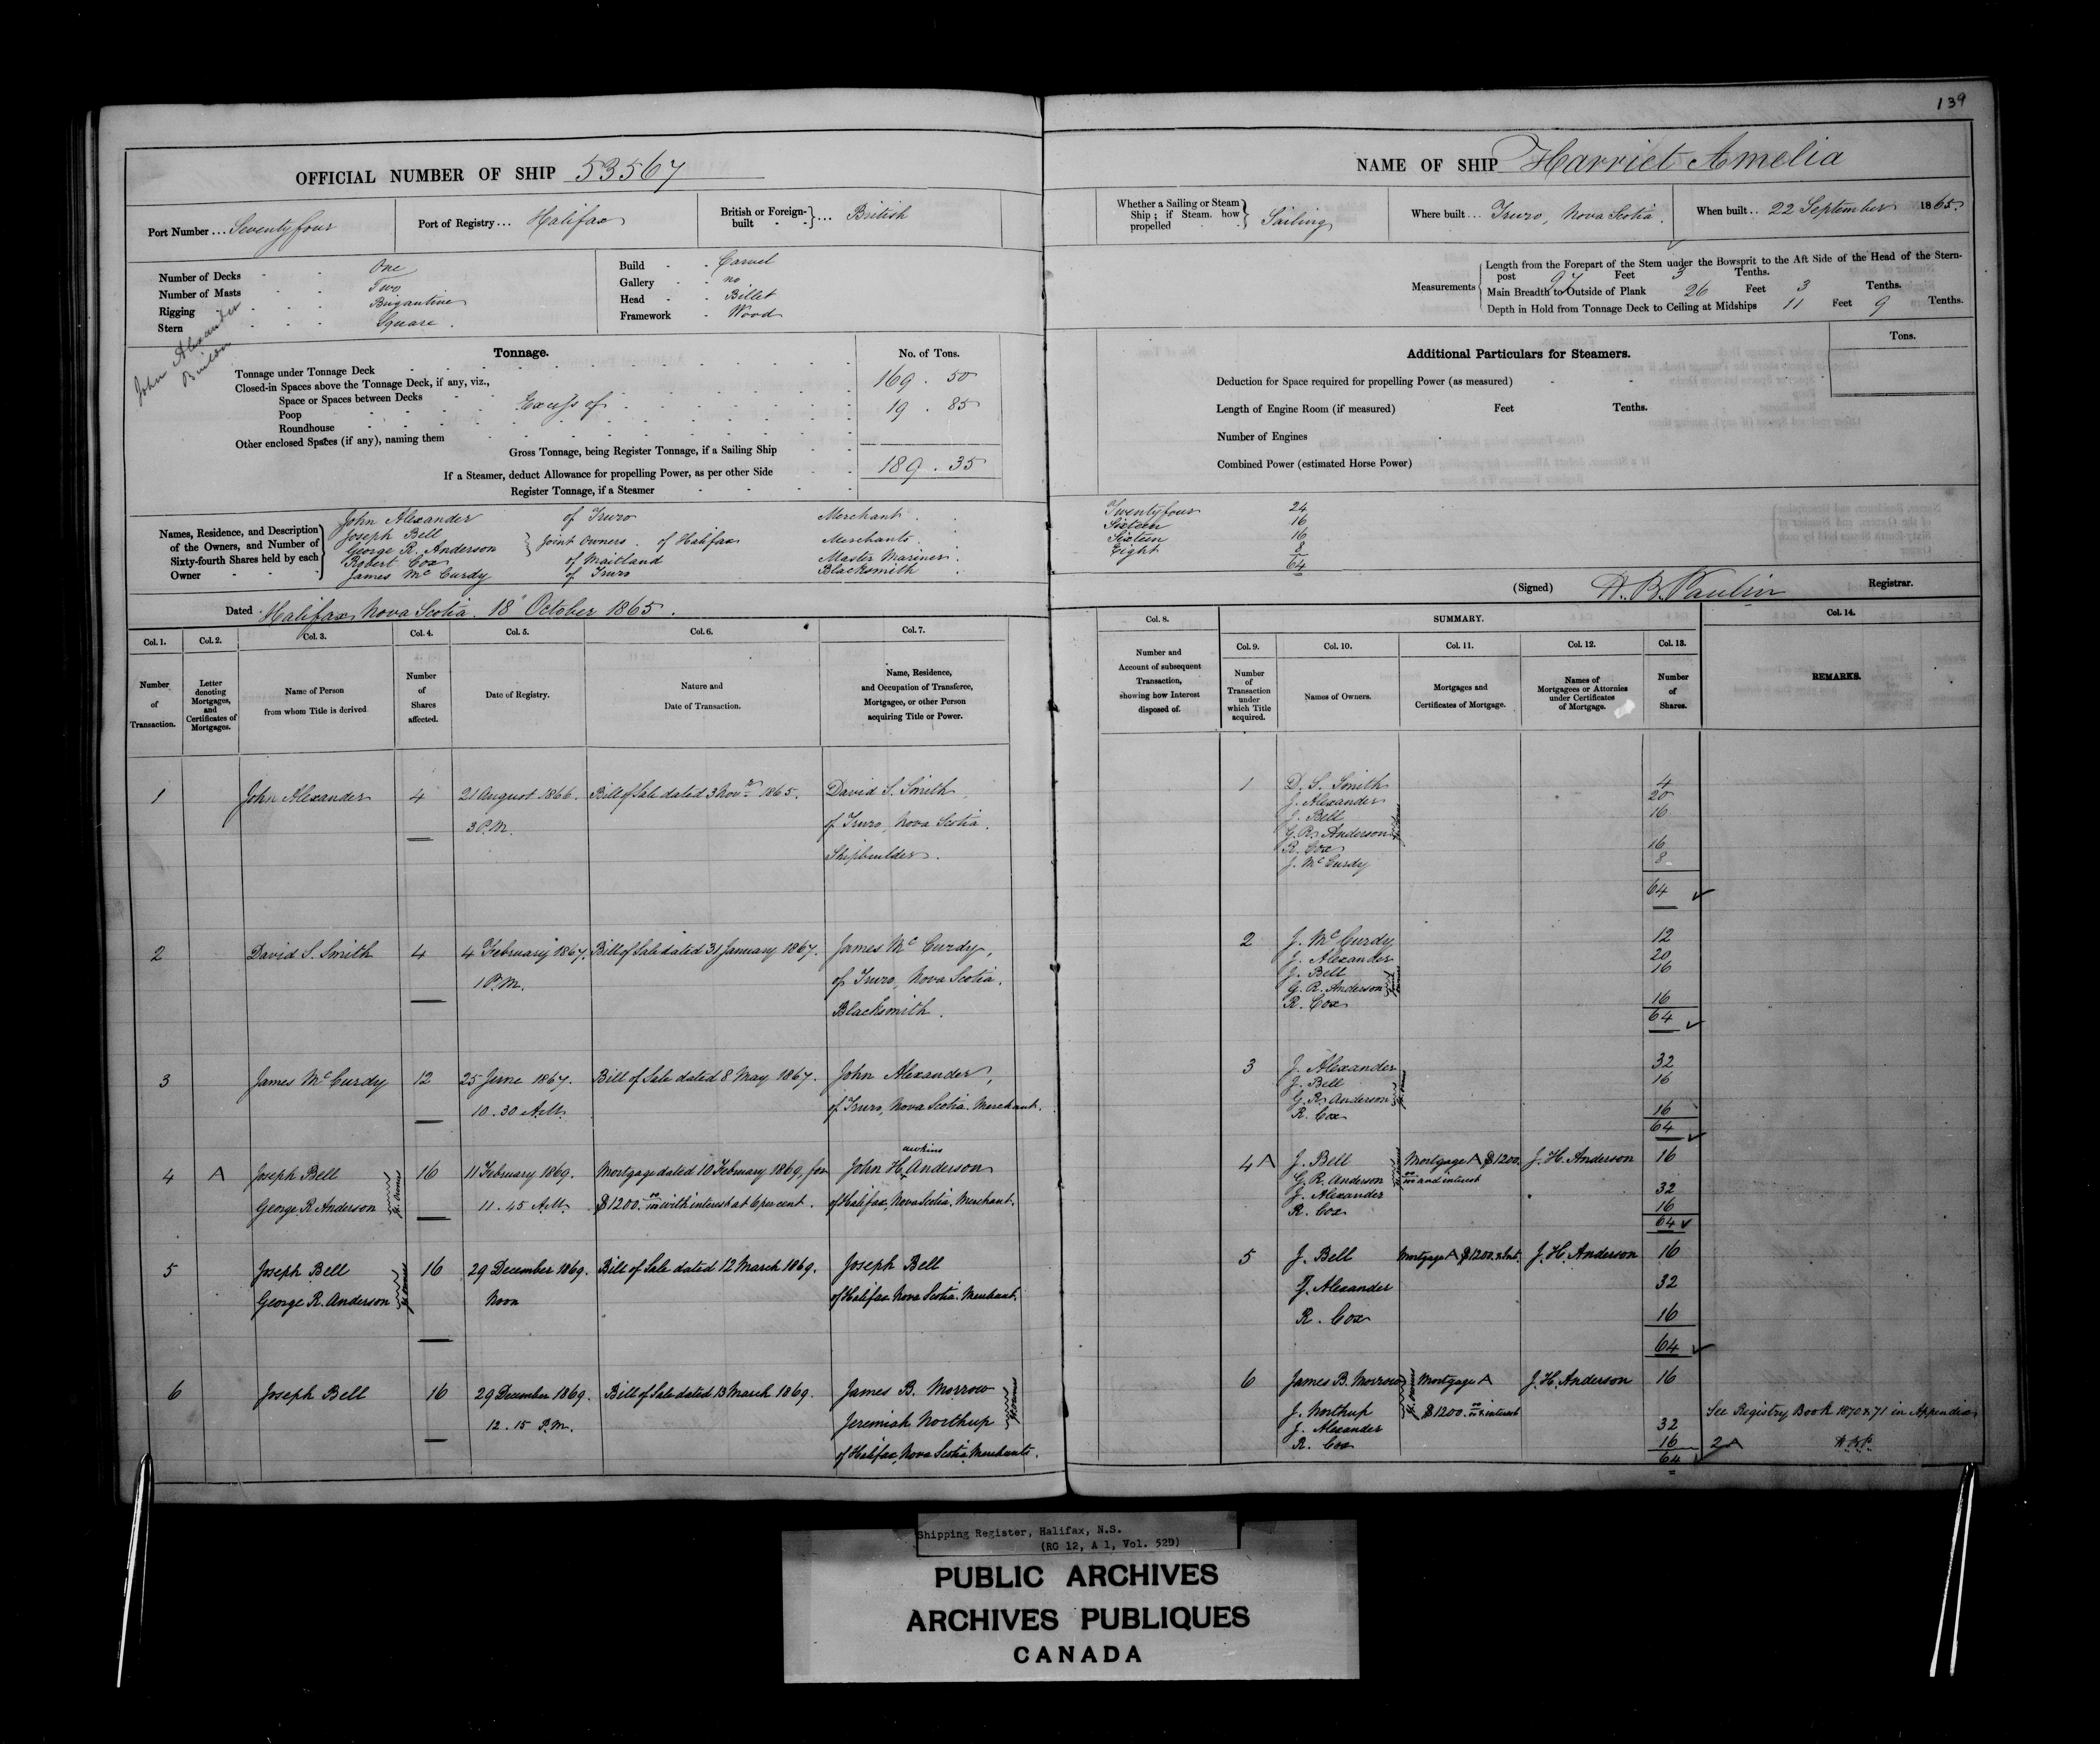 139
OFFICIAL NUMBER OF SHIP 53567
Port Number ... Seventy four
Port of Registry ... Halifax
British or Foreign-built } ... British
Number of Decks - - One
Number of Masts - - Two
Rigging - - - Brigantine
Stern - - - Square.
Build - - Carvel
Gallery - - no
Head - - Billet
Framework - Wood
John Alexander
Builder
Tonnage.
No. of Tons.
Tonnage under Tonnage Deck 169 . 50
Closed-in Spaces above the Tonnage Deck, if any, viz.,
Space or Spaces between Decks
Poop Excess of 19 . 85
Roundhouse
Other enclosed Spaces (if any), naming them
Gross Tonnage, being Register Tonnage, if a Sailing Ship 189 . 35
If a Steamer, deduct Allowance for propelling Power, as per other Side
Register Tonnage, if a Steamer
Names, Residence, and Description of the Owners, and Number of Sixty-fourth Shares held by each Owner
John Alexander of Truro Merchant.
Joseph Bell
George R. Anderson } Joint Owners. of Halifax Merchants.
Robert Cox of Maitland Master Mariner.
James McCurdy of Truro Blacksmith
Dated Halifax Nova Scotia. 18 October 1865.
Col. 1. Col. 2. Col. 3. Col. 4. Col. 5. Col. 6. Col. 7.
Number of Transaction.
Letter denoting Mortgages, and Certificates of Mortgages.
Name of Person from whom Title is derived
Number of Shares affected.
Date of Registry.
Nature and Date of Transaction.
Name, Residence, and Occupation of Transferee, Mortgagee, or other Person acquiring Title or Power.
1 John Alexander 4 21 August 1866. Bill of Sale dated 3 Novr 1865. David S. Smith,
3 P.M. of Truro, Nova Scotia.
Shipbuilder.
2 David S. Smith 4 4 February 1867. Bill of Sale dated 31 January 1867. James McCurdy,
1 P.M. of Truro, Nova Scotia.
Blacksmith.
3 James McCurdy 12 25 June 1867. Bill of Sale dated 8 May 1867. John Alexander,
10.30 A.M. of Truro, Nova Scotia. Merchant.
awkins
4 A Joseph Bell 16 11 February 1869. Mortgage dated 10 February 1869, for John H. Anderson
George R. Anderson Jt. Owners 11.45 A.M. $1200.00/100 with interest at 6 per cent. of Halifax, Nova Scotia. Merchant.
5 Joseph Bell 16 29 December 1869. Bill of Sale dated 12 March 1869. Joseph Bell
George R. Anderson Jt. Owners Noon of Halifax Nova Scotia. Merchant.
6 Joseph Bell 16 29 December 1869. Bill of Sale dated 13 March 1869. James B. Morrow
12.15 P.M. Jeremiah Northup Jt. Owners
of Halifax, Nova Scotia, Merchants.
NAME OF SHIP Harriet Amelia
Whether a Sailing or Steam Ship ; if Steam how propelled } Sailing
Where built ... Truro, Nova Scotia.
When built .. 22 September 1865.
Measurements
Length from the Forepart of the Stem under the Bowsprit to the Aft Side of the Head of the Stern-
post 97 Feet 3 Tenths.
Main Breadth to Outside of Plank 26 Feet 3 Tenths.
Depth in Hold from Tonnage Deck to Ceiling at Midships 11 Feet 9 Tenths.
Additional Particulars for Steamers.
Tons.
Deduction for Space required for propelling Power (as measured)
Length of Engine Room (if measured) Feet Tenths.
Number of Engines
Combined Power (estimated Horse Power)
Twenty four 24
Sixteen 16
Sixteen 16
Eight 8
64
(Signed) H. B. Paulin Registrar.
Col. 8. SUMMARY. Col. 14.
Col. 9. Col. 10. Col. 11. Col. 12. Col. 13.
Number and Account of subsequent Transaction, showing how Interest disposed of.
Number of Transaction under which Title acquired.
Names of Owners.
Mortgages and Certificates of Mortgage.
Names of Mortgagees or Attornies under Certificates of Mortgage.
Number of Shares.
REMARKS.
1 D. S. Smith 4
J. Alexander 20
J. Bell 16
G. R. Anderson
R. Cox 16
J. McCurdy 8
64
2 J. McCurdy 12
J. Alexander 20
J. Bell 16
G. R. Anderson
R. Cox 16
64
3 J. Alexander 32
J. Bell 16
G. R. Anderson
R. Cox 16
64
4 A J. Bell Mortgage A $1200. J. H. Anderson 16
G. R. Anderson 00/100 and interest
J. Alexander 32
R. Cox 16
64
5 J. Bell Mortgage A $1200. & Int. J. H. Anderson 16
J. Alexander 32
R. Cox 16
64
6 James B. Morrow Mortgage A J. H. Anderson 16
J. Northup Jt. Owners $1200.00/100 & interest
J. Alexander 32
R. Cox 16
64
See Registry Book 1870 & 71 in Appendix
2 A
Shipping Register, Halifax, N.S.
(RG 12, A 1, Vol. 52D)
PUBLIC ARCHIVES
ARCHIVES PUBLIQUES
CANADA